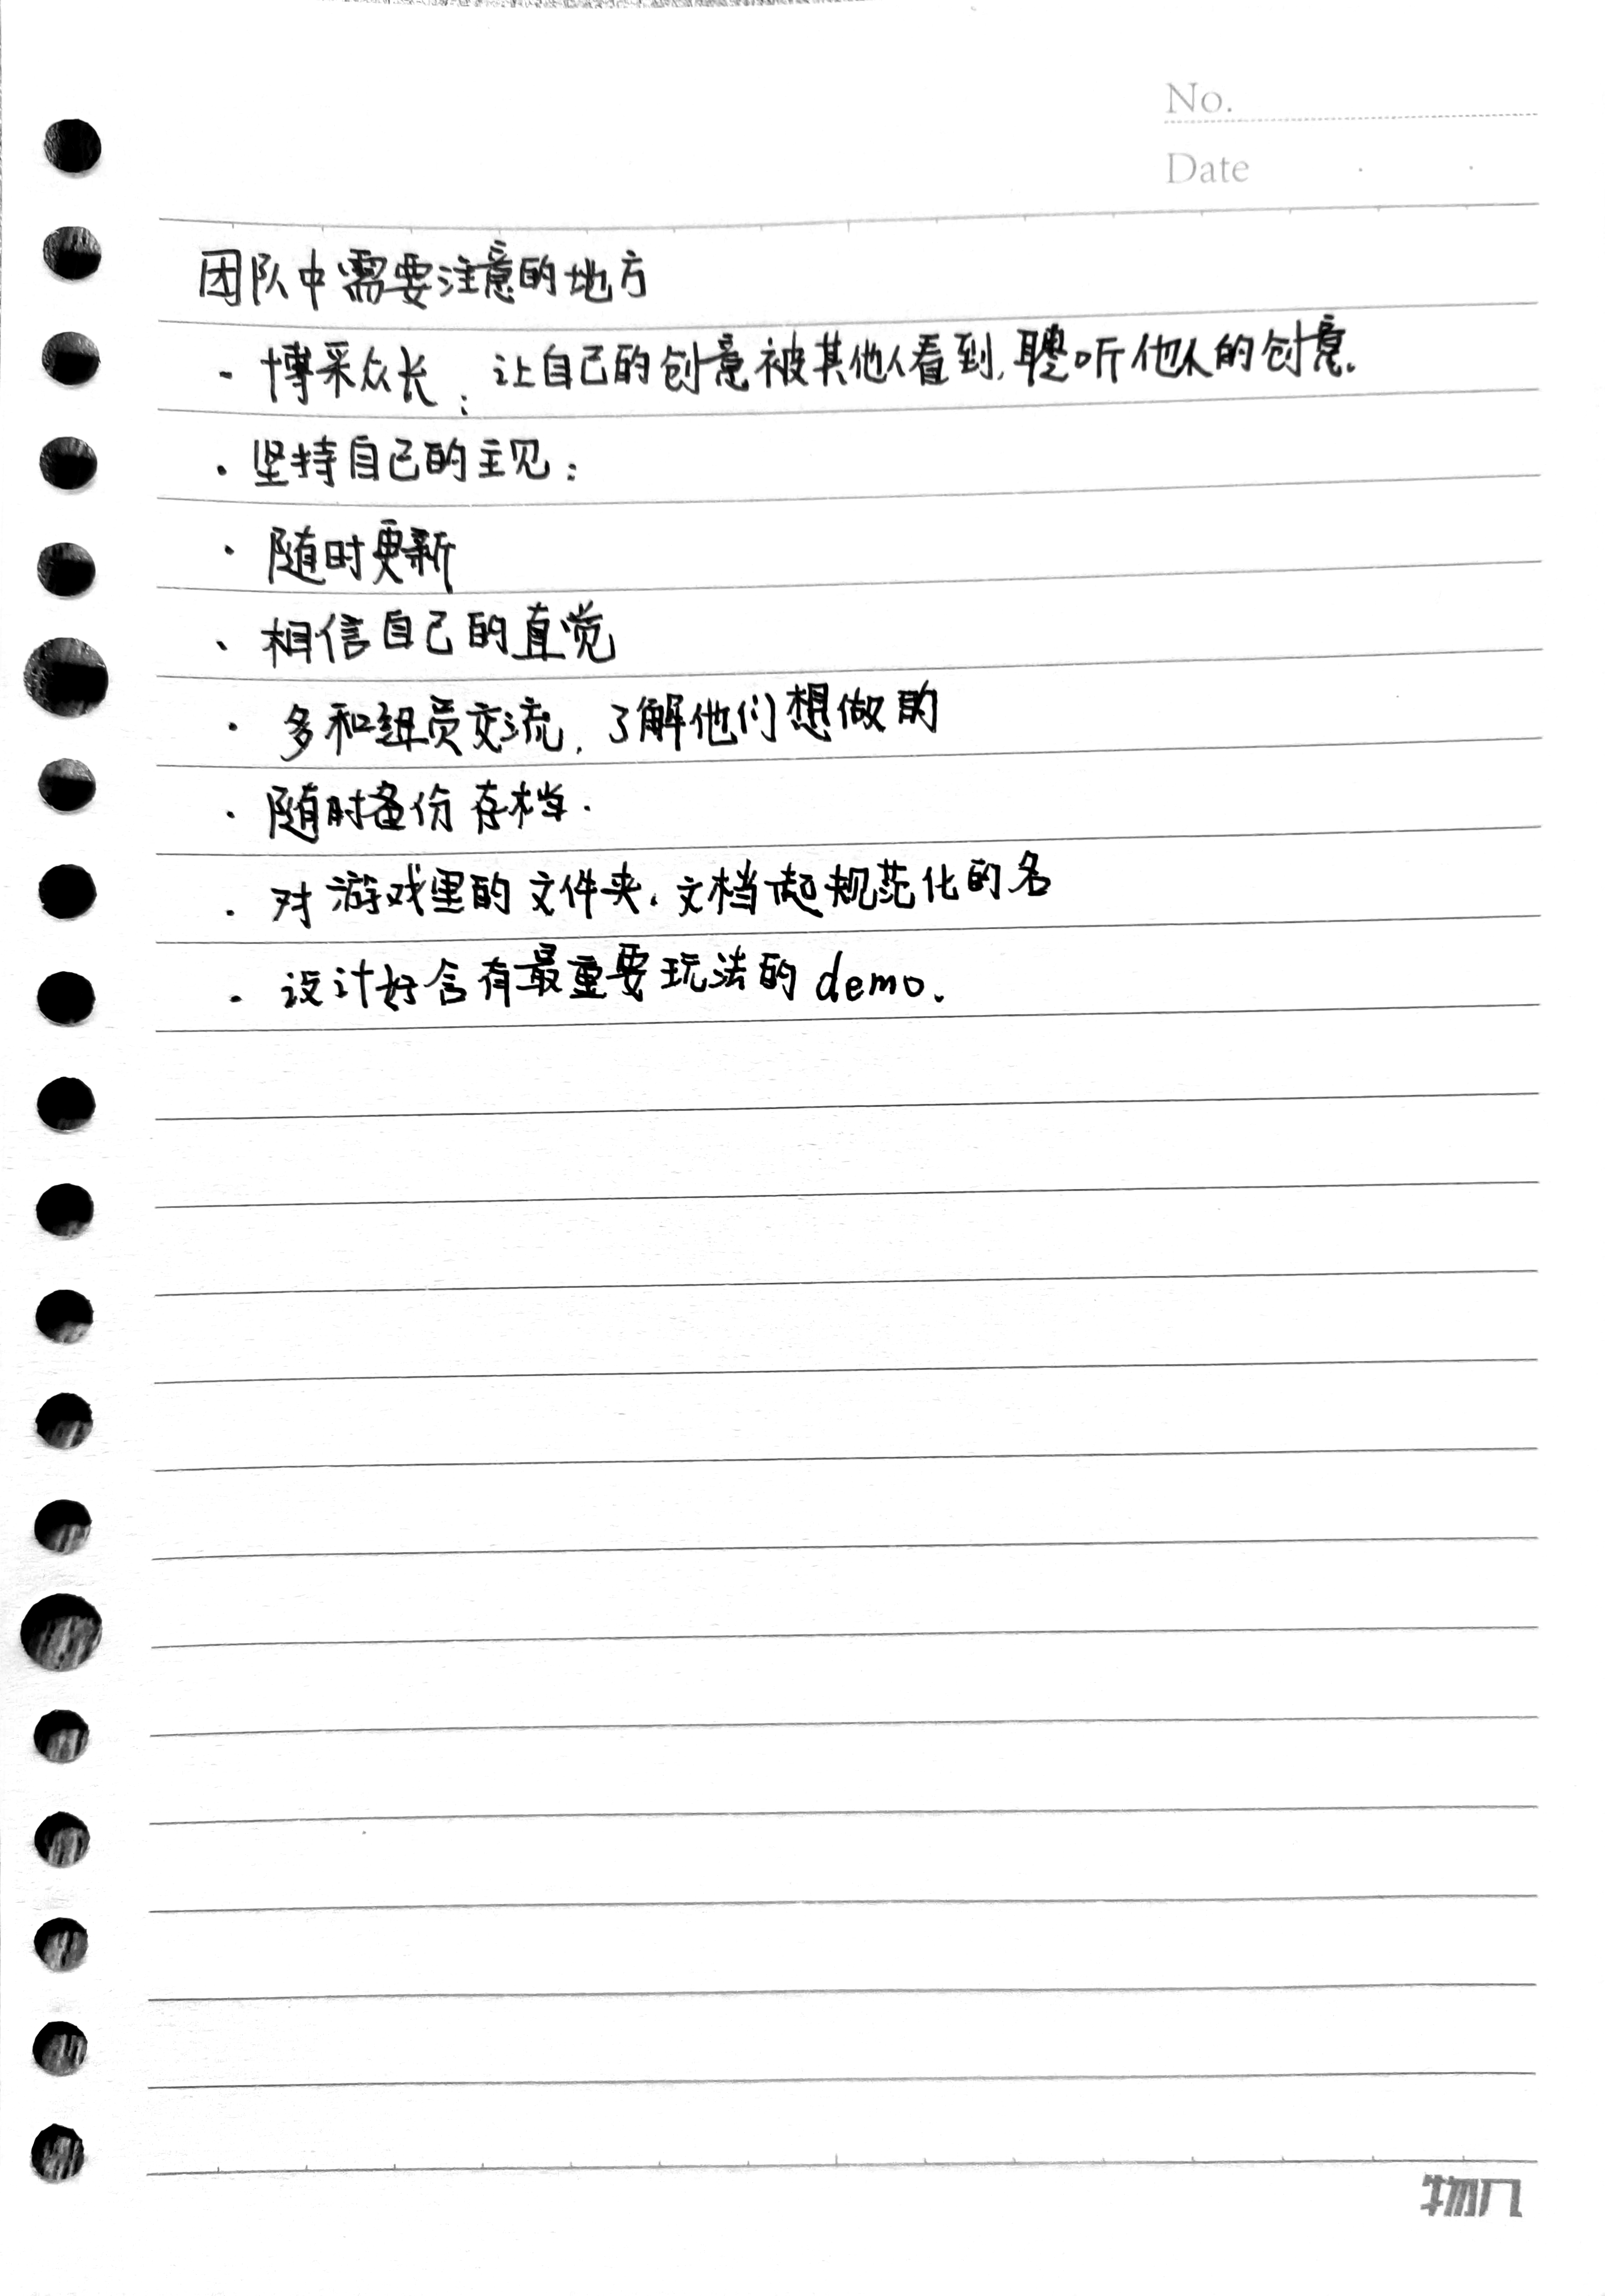 No.
Date
团队中需要注意的地方
- 博采众长：让自己的创意被其他人看到,聆听他人的创意.
· 坚持自己的主见：
· 随时更新
、相信自己的直觉
· 多和组员交流，了解他们想做的
· 随时备份存档.
. 对游戏里的文件夹、文档起规范化的名
. 设计好含有最重要玩法的demo.
物几